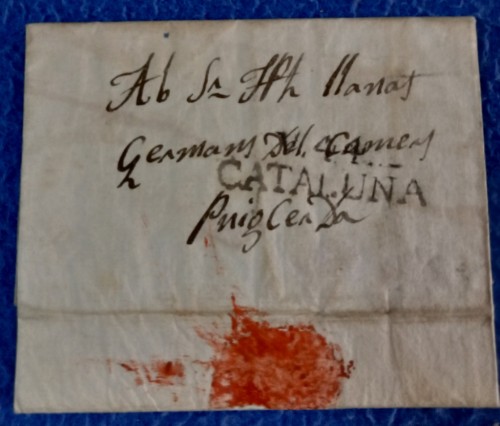 Ab Sr Hh llanas
Germans Del
CATALUÑA
Puig Cerda